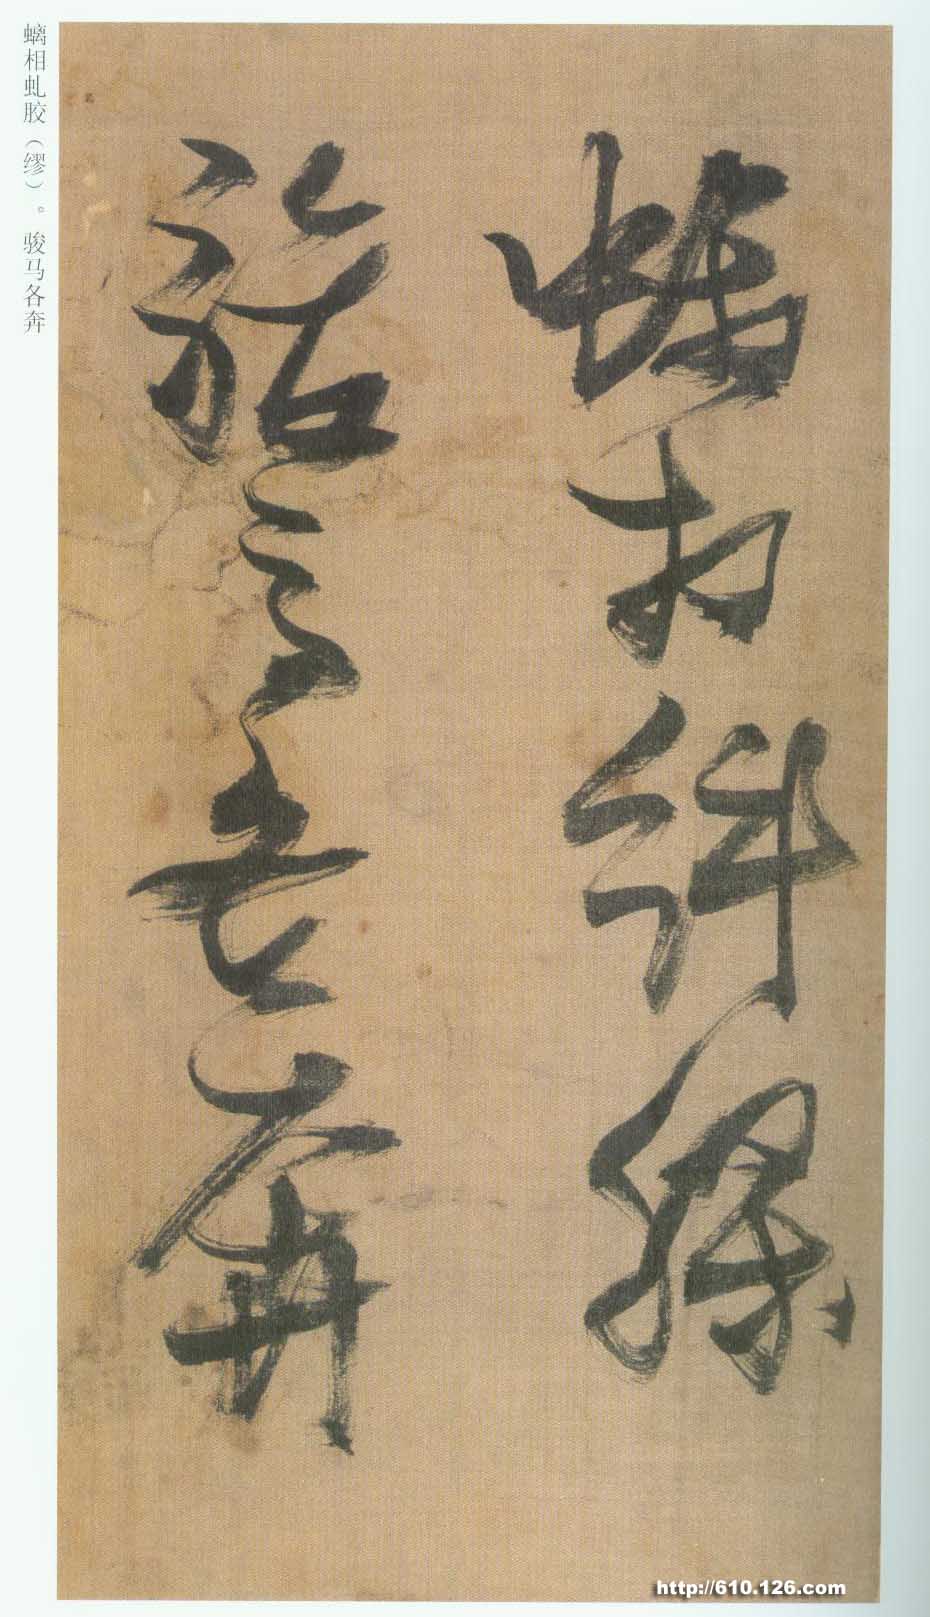 螭相糾繆
各奔
螭相虬胶（缪）。骏马各奔
http://610.126.com